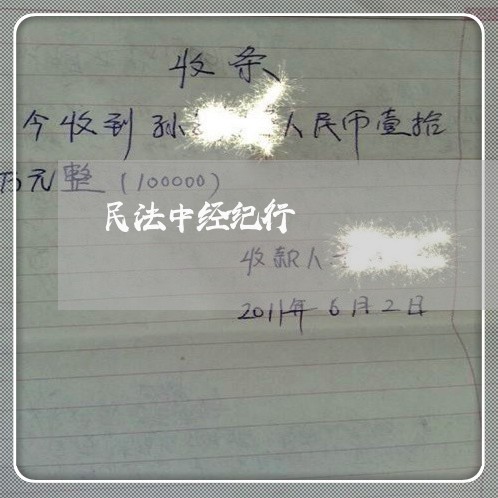 收条
今收到孙 人民币壹拾
万元整(100000)
民法中经纪行
收款人
2011年6月2日